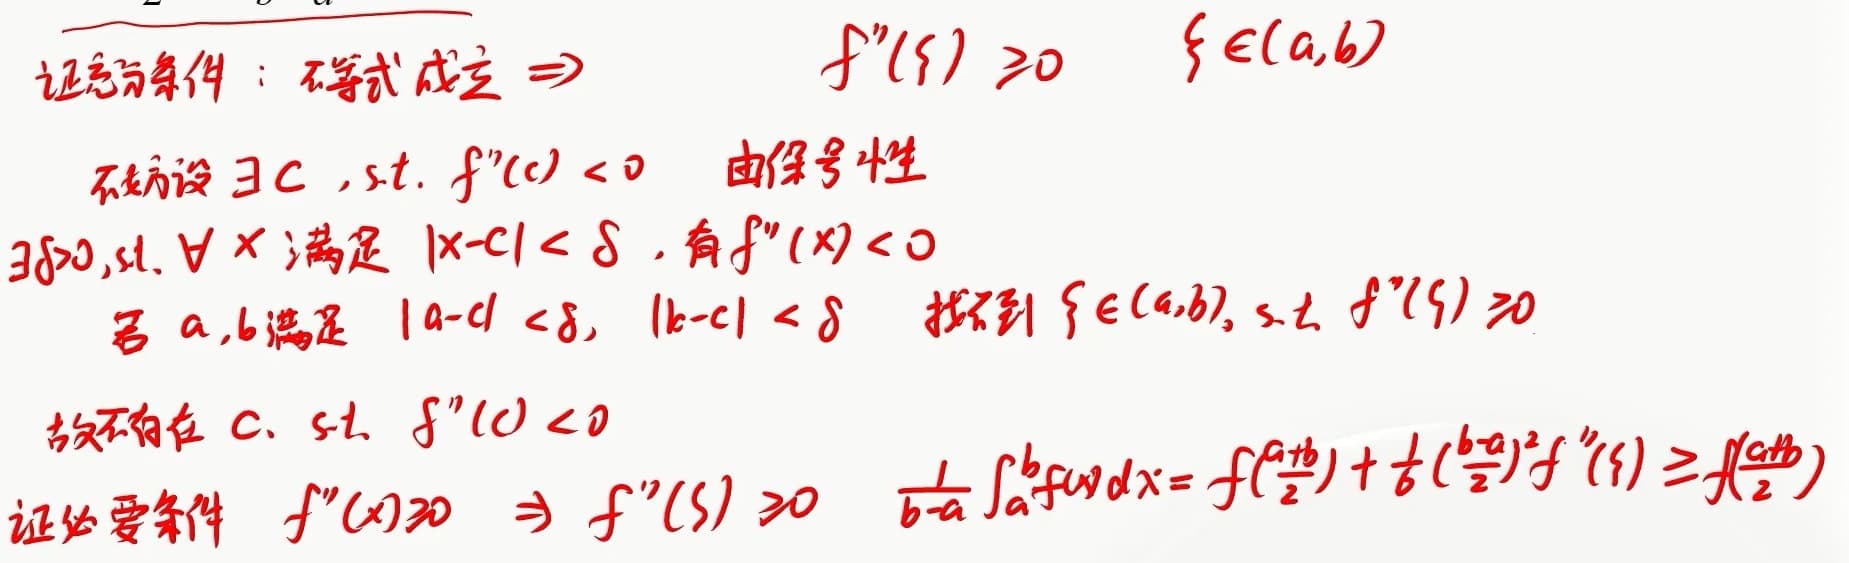 证充分条件：不等式成立 ⇒ f''(ξ) ≥0 ξ∈(a,b)
不妨设 ∃C , s.t. f''(c) < 0 由保号性
∃δ>0, s.t. ∀ x 满足 |x-c| < δ . 有 f''(x) < 0
若 a,b满足 |a-c| < δ, |b-c| < δ 找不到 ξ∈(a,b), s.t. f''(ξ) ≥0
故不存在 C. s.t. f''(c) < 0
证必要条件 f''(x)≥0 ⇒ f''(ξ) ≥0 1/(b-a) ∫_a^b f(x)dx = f((a+b)/2) + 1/6 ((b-a)/2)² f''(ξ) ≥ f((a+b)/2)